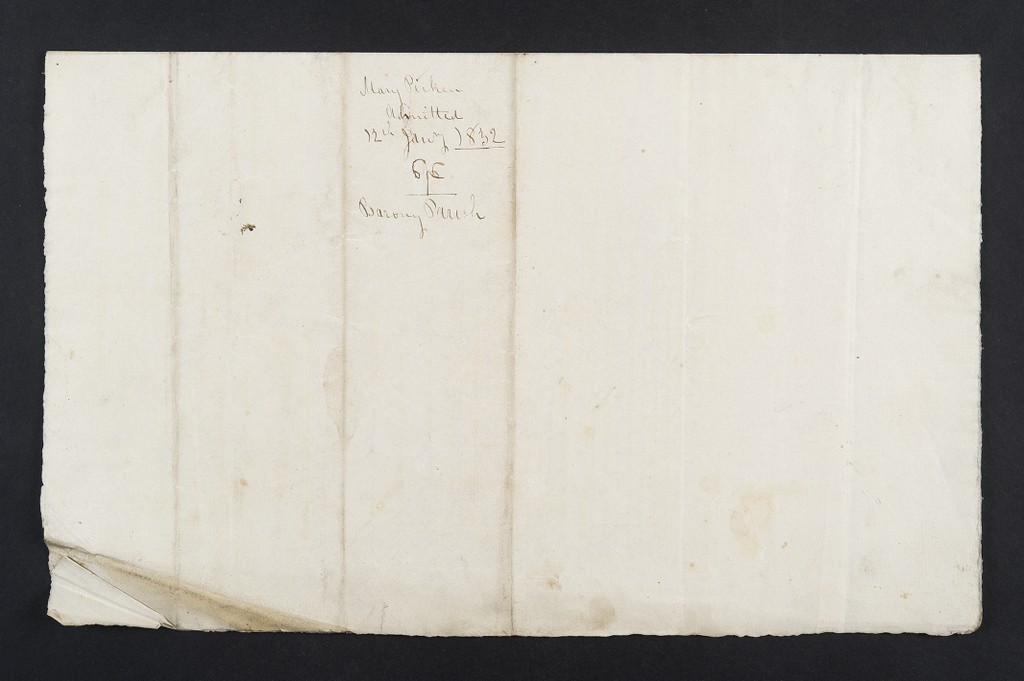 Mary Pirken
Admitted
12th Jan'y 1832
6/6
Barony Parish